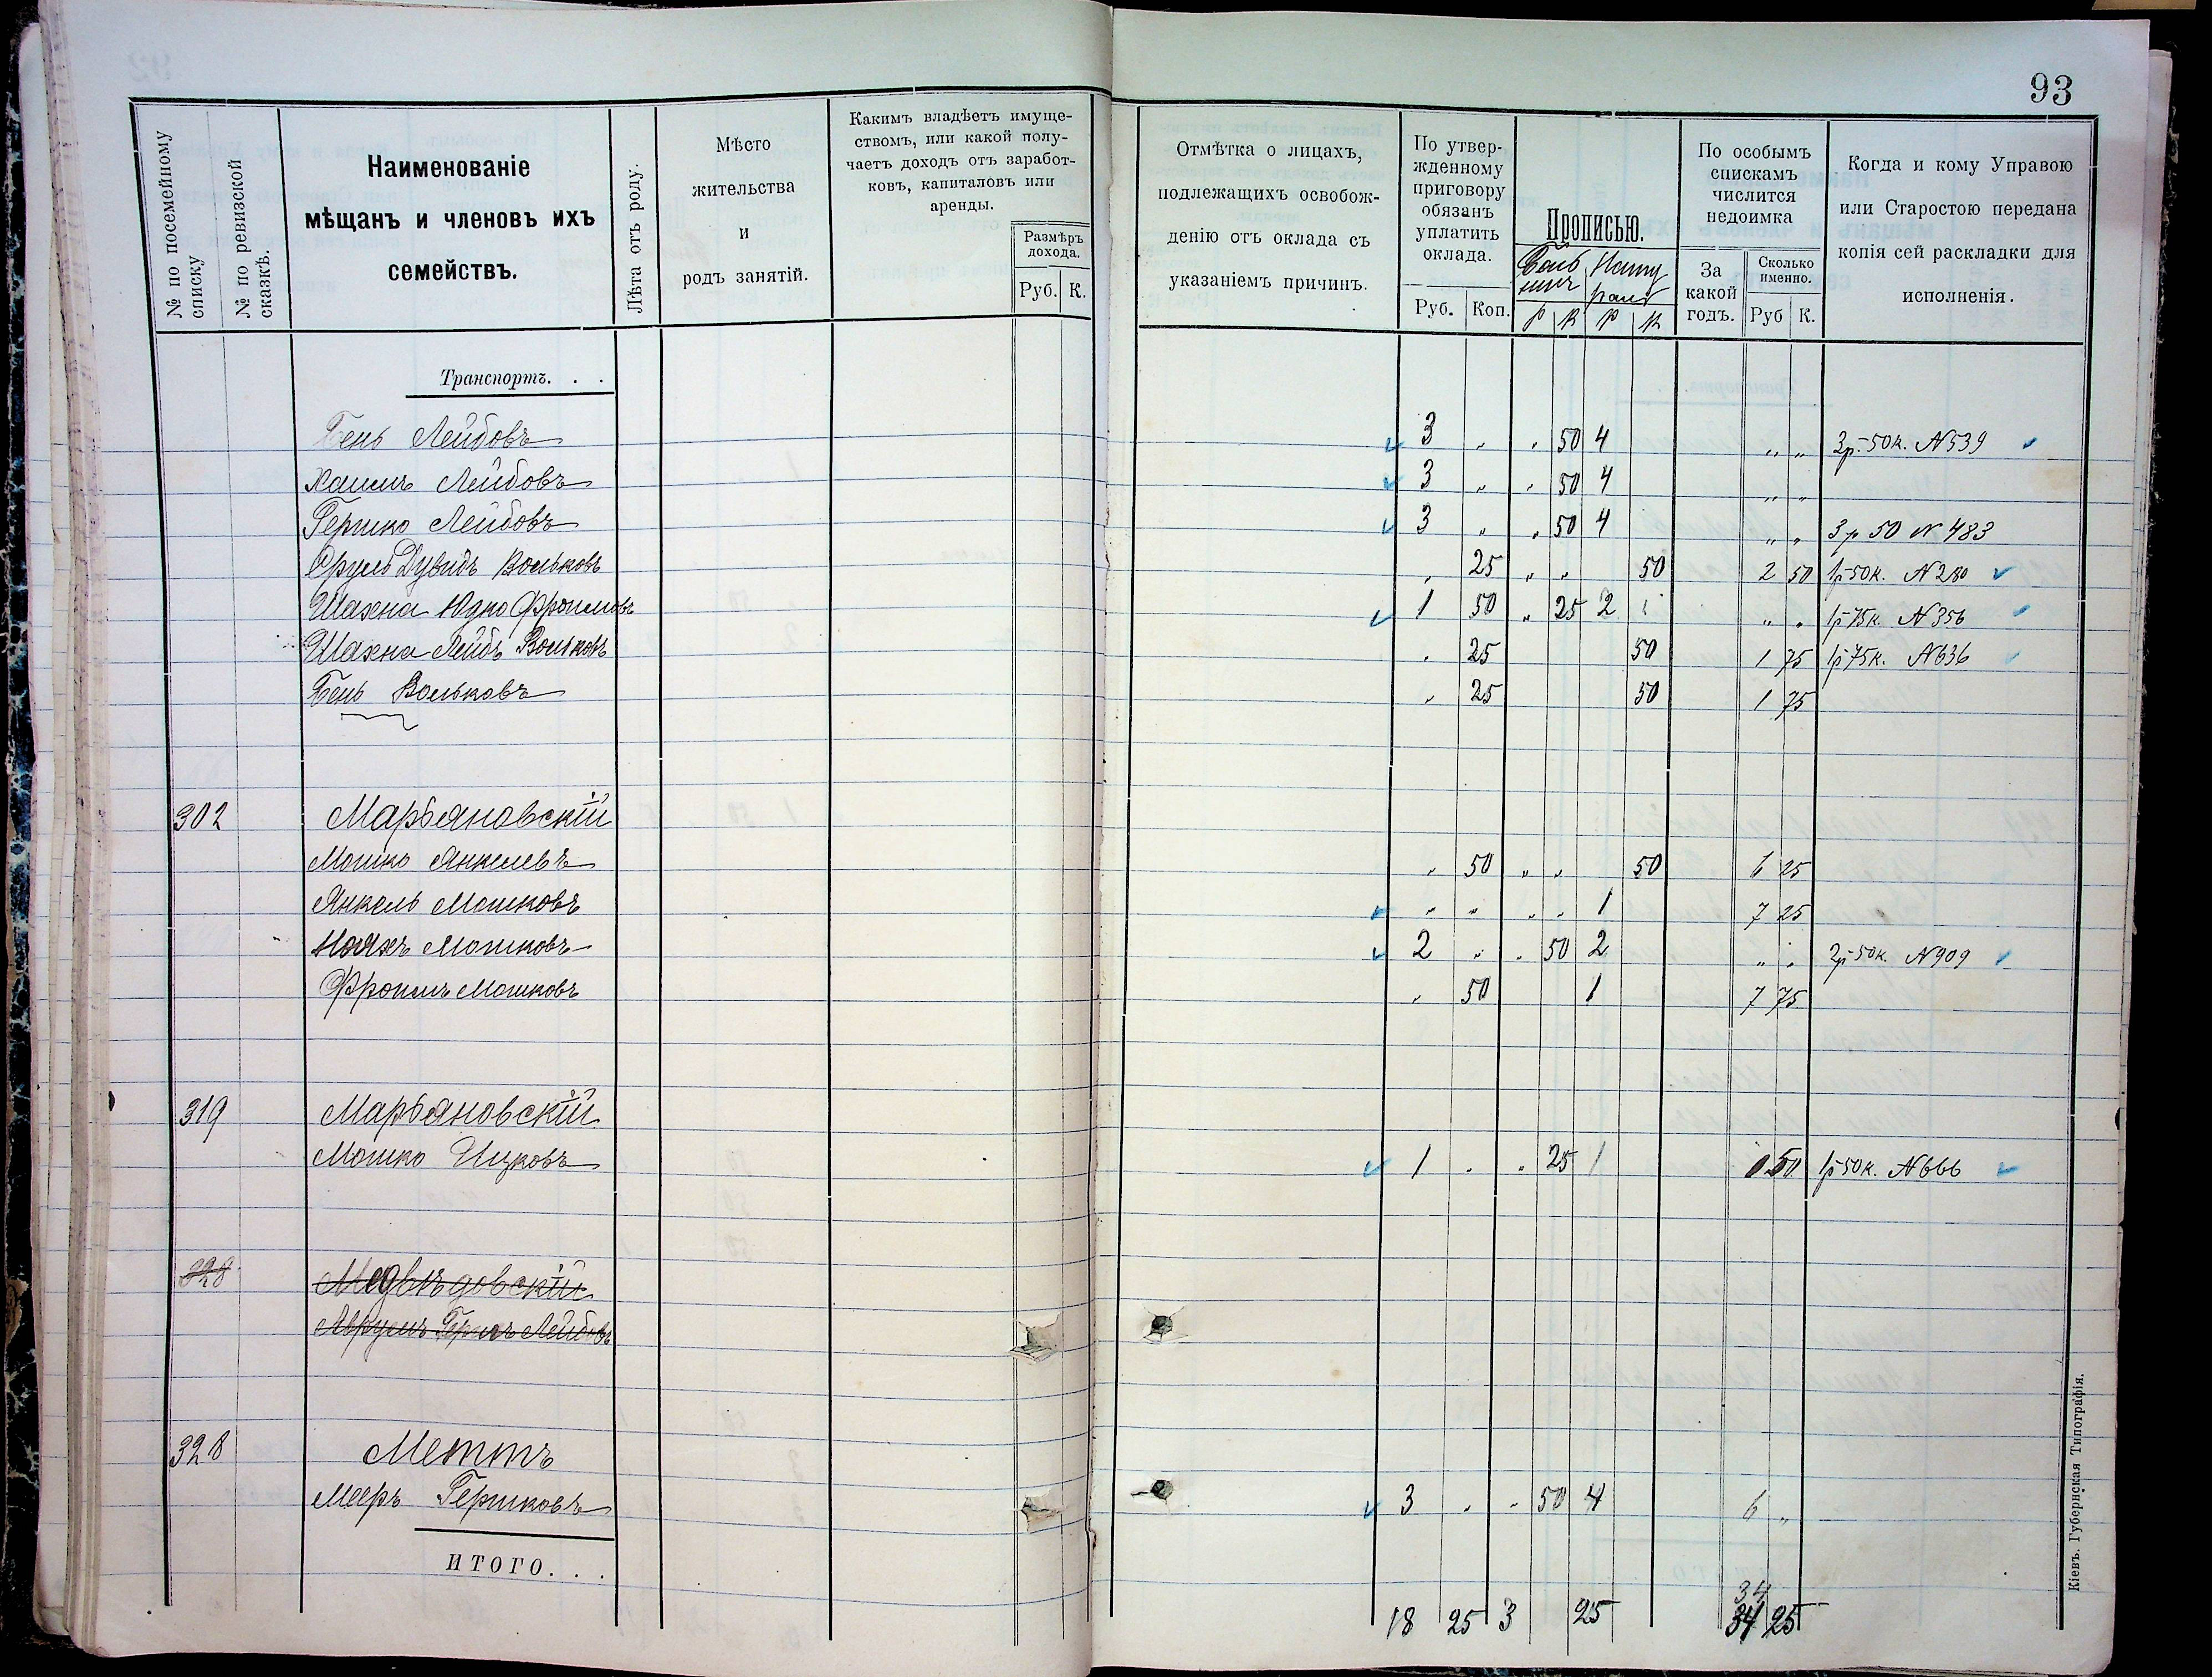 93
№ по посемейному списку
№ по ревизской сказкѣ.
Наименованіе
мѣщанъ и членовъ ихъ
семействъ.
Лѣта отъ роду.
Мѣсто
жительства
и
родъ занятій.
Какимъ владѣетъ имуще-
ствомъ, или какой полу-
чаетъ доходъ отъ заработ-
ковъ, капиталовъ или
аренды.
Размѣръ
дохода.
Руб. К.
Отмѣтка о лицахъ,
подлежащихъ освобож-
денію отъ оклада съ
указаніемъ причинъ.
По утвер-
жденному
приговору
обязанъ
уплатить
оклада.
Руб. Коп.
Прописью.
Р К Р К
По особымъ
спискамъ
числится
недоимка
За
какой
годъ.
Сколько
именно.
Руб К.
Когда и кому Управою
или Старостою передана
копія сей раскладки для
исполненія.
Транспортъ. . .
Бень Лейбовъ 3 „ „ 50 4 „ „ 3р.50к. N539
Хаимъ Лейбовъ 3 „ „ 50 4 „ „
Гершко Лейбовъ 3 „ „ 50 4 „ „ 3р 50 N 483
Сруль Дувидъ Вольковъ „ 25 „ „ 50 2 50 1р50к. N280
Шахна Юдко Фроимовъ 1 50 „ 25 2 „ „ 1р75к. N356
Шахна Лейбъ Вольковъ „ 25 50 1 75 1р75к. N636
Бень Вольковъ „ 25 50 1 75
302 Марьяновскій
Мошко Янкелевъ „ 50 „ „ 50 6 25
Янкель Мошковъ „ „ „ „ 1 7 25
Нояхъ Мошковъ 2 „ „ 50 2 „ „ 2р50к. N909
Фроимъ Мошковъ „ 50 1 7 75
319 Марьяновскій
Мошко Ицковъ 1 „ „ 25 1 1 50 1р50к. N666
328 Медвѣдовскій
Аврумъ Гершъ Лейбовъ
328 Меттъ
Мееръ Гершковъ 3 „ „ 50 4 6 „
ИТОГО. . .
34
18 25 3 25 34 25
Кіевъ. Губернская Типографія.